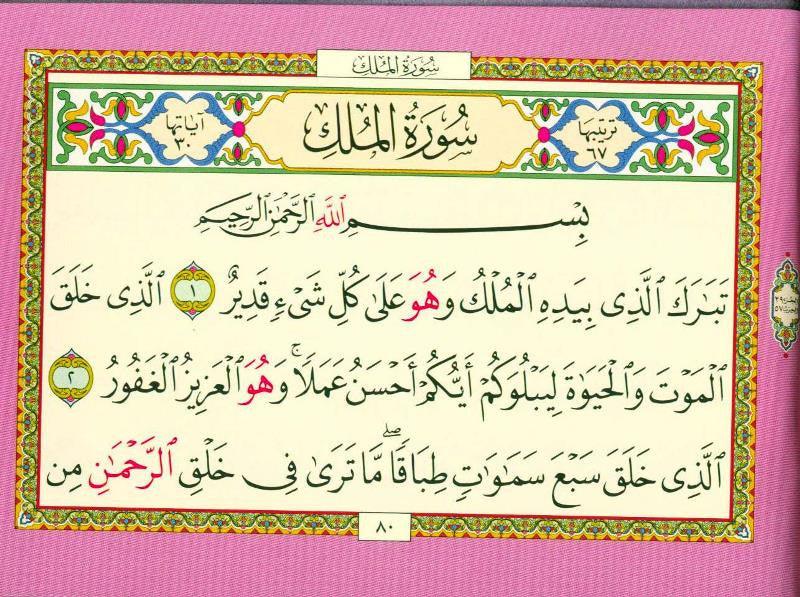 سُورَةُ المُلْكِ
ترتيبها ٦٧
سُورَةُ المُلْكِ
آياتها ٣٠
بِسْمِ ٱللَّهِ ٱلرَّحْمَٰنِ ٱلرَّحِيمِ
تَبَٰرَكَ ٱلَّذِى بِيَدِهِ ٱلْمُلْكُ وَهُوَ عَلَىٰ كُلِّ شَىْءٍ قَدِيرٌ ١ ٱلَّذِى خَلَقَ
ٱلْمَوْتَ وَٱلْحَيَوٰةَ لِيَبْلُوَكُمْ أَيُّكُمْ أَحْسَنُ عَمَلًا ۚ وَهُوَ ٱلْعَزِيزُ ٱلْغَفُورُ ٢
ٱلَّذِى خَلَقَ سَبْعَ سَمَٰوَٰتٍ طِبَاقًا ۖ مَّا تَرَىٰ فِى خَلْقِ ٱلرَّحْمَٰنِ مِن
٨٠
الجزء ٢٩
الحزب ٥٧